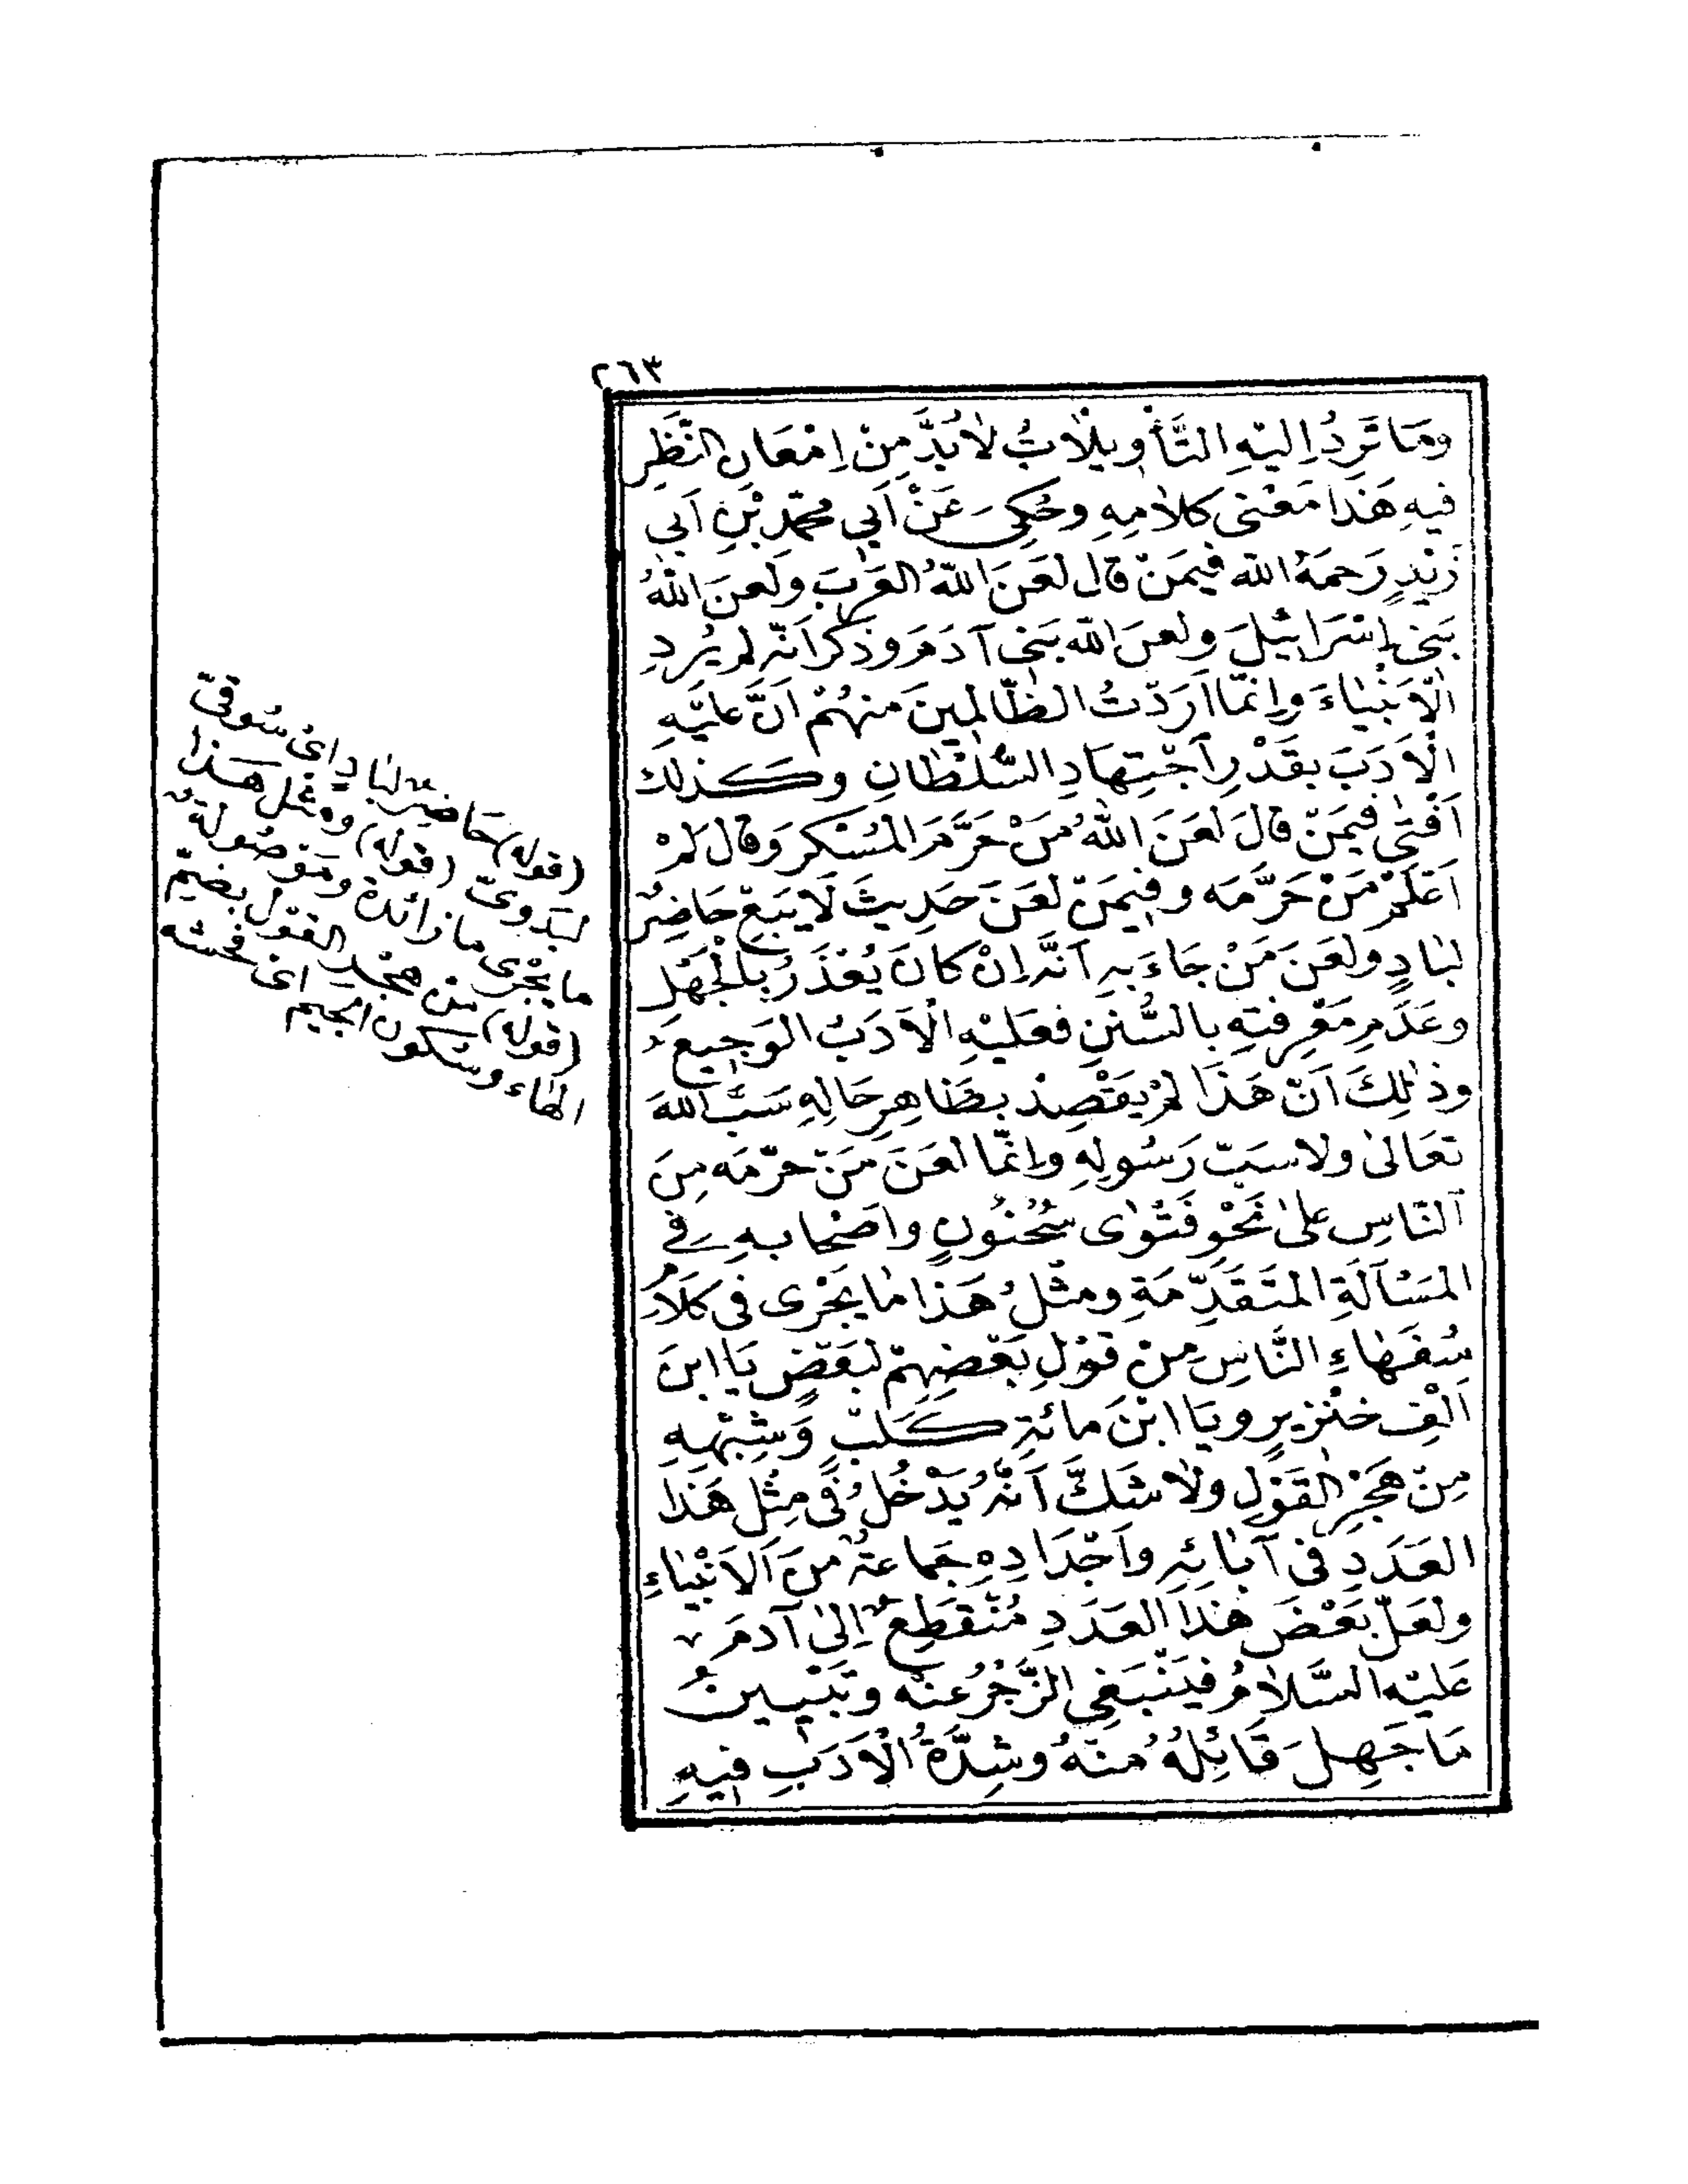 ٢٦٣
وَمَا تَرِدُ اِلَيْهِ التَّأْوِيلَاتُ لَابُدَّ مِنْ اِمْعَانِ النَّظَرِ
فيهِ هَذَا مَعْنَى كَلَامِهِ وحُكِىَ عَنْ اَبِي مُحَمَّدِ بْنِ اَبِي
زَيْدٍ رَحِمَهُ الله فيمَنْ قال لَعَنَ اللّٰهُ العَرَبَ ولَعَنَ اللّٰهُ
بَنِى اِسْرَائِيلَ ولَعَنَ الله بَنِى آدَمَ وذَكَرَ اَنَّه لم يُرِدِ
الْاَنْبِيَاءَ وَاِنَّمَا اَرَدْتُ الظَّالِمِينَ مِنْهُمْ اَنَّ عَلَيْهِ
الْاَدَبَ بِقَدْرِ اجْتِهَادِ السُّلْطَانِ وكَذلِك
اَفْتَى فِيمَنْ قَالَ لَعَنَ اللّٰهُ مَنْ حَرَّمَ المُسْكِرَ وَقال لَمْ
اَعْلَمْ مَنْ حَرَّمَه وفِيمَنْ لَعَنَ حَدِيثَ لَا يَبِعْ حَاضِرٌ
لِبَادٍ ولَعَنَ مَنْ جَاءَ بِهِ اَنَّه اِنْ كَانَ يُعْذَرُ بِالْجَهْلِ
وعَدَمِ مَعْرِفَتِهِ بِالسُّنَنِ فَعَلَيْهِ الْاَدَبُ الوَجِيعُ
وذٰلِكَ اَنَّ هَذَا لَمْ يَقْصِدْ بِظَاهِرِ حَالِهِ سَبَّ اللهِ
تَعَالىٰ ولا سَبَّ رَسُولِهِ وَاِنَّمَا لَعَنَ مَنْ حَرَّمَه مِنَ
النَّاسِ عَلىٰ نَحْوِ فَتْوَى سُحْنُونٍ واَصْحَابِهِ فِى
المَسْأَلَةِ المُتَقَدِّمَةِ ومِثْلُ هَذَا مَا يَجْرِى فى كَلَامِ
سُفَهَاءِ النَّاسِ مِنْ قَوْلِ بَعْضِهِمْ لِبَعْضٍ يَا ابنَ
اَلْفِ خِنْزِيرٍ ويَا ابْنَ مائَةِ كَلْبٍ وَشِبْهِهِ
مِنْ هُجْرِ القَوْلِ ولَا شَكَّ اَنَّهُ يَدْخُلُ فى مِثْلِ هَذَا
العَدَدِ فى آبَائِهِ واَجْدَادِهِ جَمَاعَةٌ مِنَ الاَنْبِيَاءِ
ولَعَلَّ بَعْضَ هَذَا العَدَدِ مُنْقَطِعٌ اِلىٰ آدَمَ
عَلَيْهِ السَّلَامُ فيَنْبَغِى الزَّجْرُ عَنْه وتَبْيِينُ
مَا جَهِلَ قَائِلُهُ مِنْهُ وشِدَّةُ الْاَدَبِ فِيهِ
(قوله) حَاضِرٌ لبَادٍ اىْ سُوقىّ
لبَدَوىّ (قوله) ومثل هَذا
ما يَجْرى ما زائدة ومَوْصُولة
(قوله) مِن هُجْرِ القول بضمّ
الهَاء وسُكون الجيم اىْ فحشه